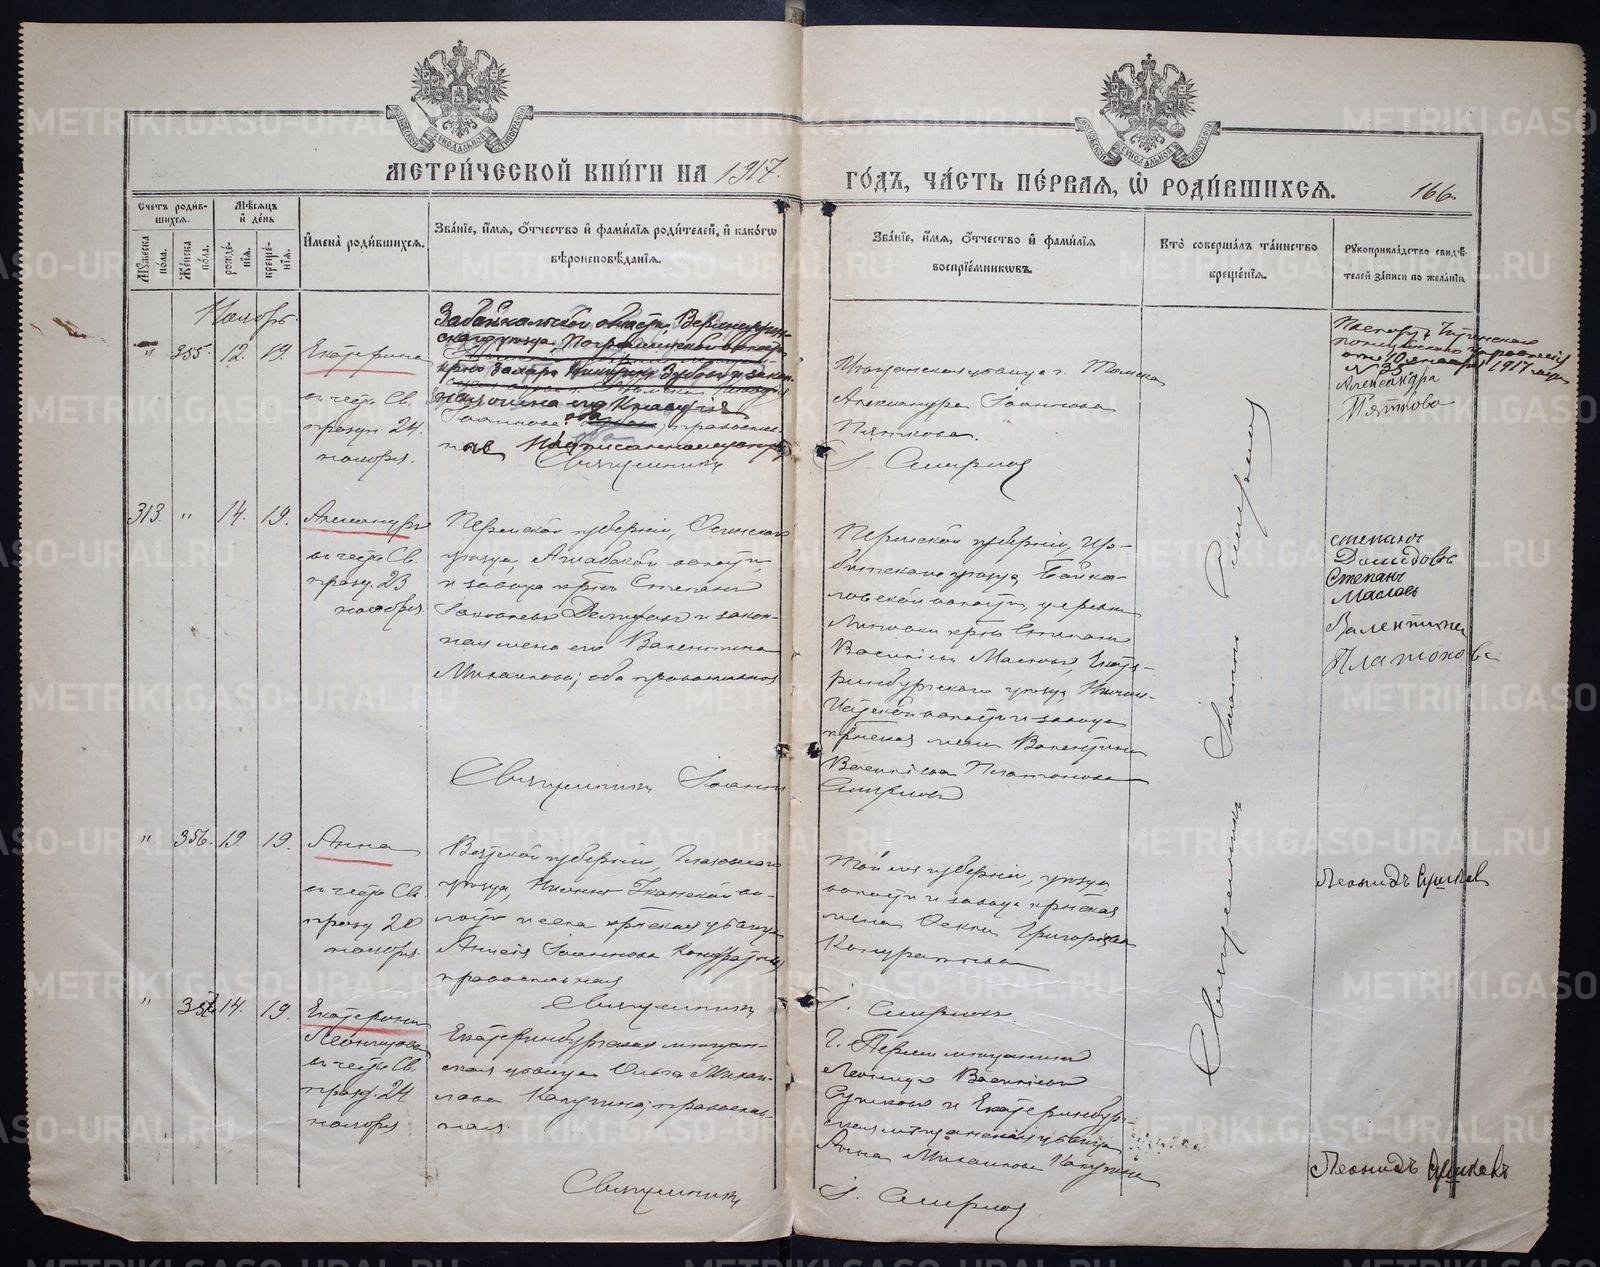 МЕТРИ́ЧЕСКОЙ КНИ́ГИ НА 1917.
ГО́ДЪ, ЧА́СТЬ ПЕ́РВАЯ, Ѡ҆ РОДИ́ВШИХСЯ.
166
Счетъ родив-
шихся.
Мѣсяцъ
и день
Мужеска
пола.
Женска
пола.
рожде-
нія.
креще-
нія.
Имена родившихся.
Званіе, имя, отчество и фамилія родителей, и какогѡ
вѣроисповѣданія.
Званіе, имя, отчество и фамилія
воспріемниковъ.
Кто совершалъ таинство
крещенія.
Рукоприкладство свидѣ-
телей записи по желанію
Ноябрь.
" 355. 12. 19. Екатерина
въ честь Св.
празд. 24.
ноября.
Забайкальской области, Верхнеудин-
скаго уѣзда,
кр-нъ Захаръ Зубовъ и закон-
ная жена его Клавдія
Іоаннова, оба православ-
Священникъ
Мѣщанская дѣвица г. Томска
Александра Іоаннова
Пяткова.
І. Смирновъ
Паспортъ Читинскаго
полицейскаго управленія
отъ 10 января 1917 года
Александра
Пяткова
313. " 14. 19. Александръ
въ честь Св.
празд. 23
ноября
Пермской губерніи, Осинскаго
уѣзда, Ашабской волости
и завода кр-нъ Степанъ
и закон-
ная жена его Валентина
Михаилова, оба православные
Священникъ Іоаннъ
Пермской губерніи, Ир-
битскаго уѣзда Байка-
ловской волости, деревни
кр-нъ Степанъ
Васильевъ Масловъ, Екате-
ринбургскаго уѣзда, Нижне-
Исетской волости и завода
кр-нская жена Валентина
Васильева Платонова
Смирновъ
степанъ
Давыдовъ
Степанъ
Маслов
Валентина
Платонова
" 356. 19. 19. Анна
въ честь Св.
празд 20
ноября.
Вятской губерніи, Глазовскаго
уѣзда, во-
лости и села кр-нская дѣвица
Анисія Іоаннова Кондратьева
православная
Священникъ
Той же губерніи, уѣзда
волости и завода кр-нская
жена Ѳекла Григорьева
Кондратьева
І. Смирновъ.
Леонидъ Сушков
" 357 14. 19. Екатерина
Леонидова
въ честь Св.
празд. 24
ноября
Екатеринбургская мѣщан-
ская дѣвица Ольга Михаи-
лова Калугина, православ-
ная.
Священникъ
Г. Перми мѣщанинъ
Леонидъ Васильевъ
Сушковъ и Екатеринбург-
ская мѣщанская дѣвица
Анна Михаилова Калугина
І. Смирновъ
Леонидъ Сушковъ
Священникъ Іоаннъ Смирновъ
METRIKI.GASO-URAL.RU